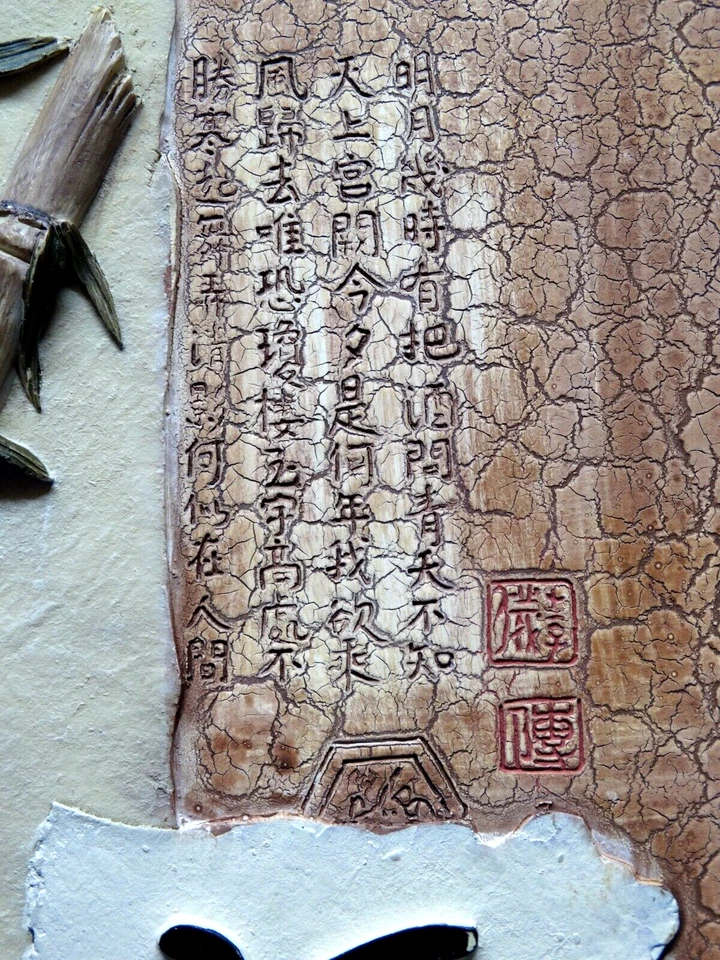 明月幾時有把酒問青天不知
天上宮闕今夕是何年我欲乘
風歸去唯恐瓊樓玉宇高處不
勝寒起舞弄清影何似在人間